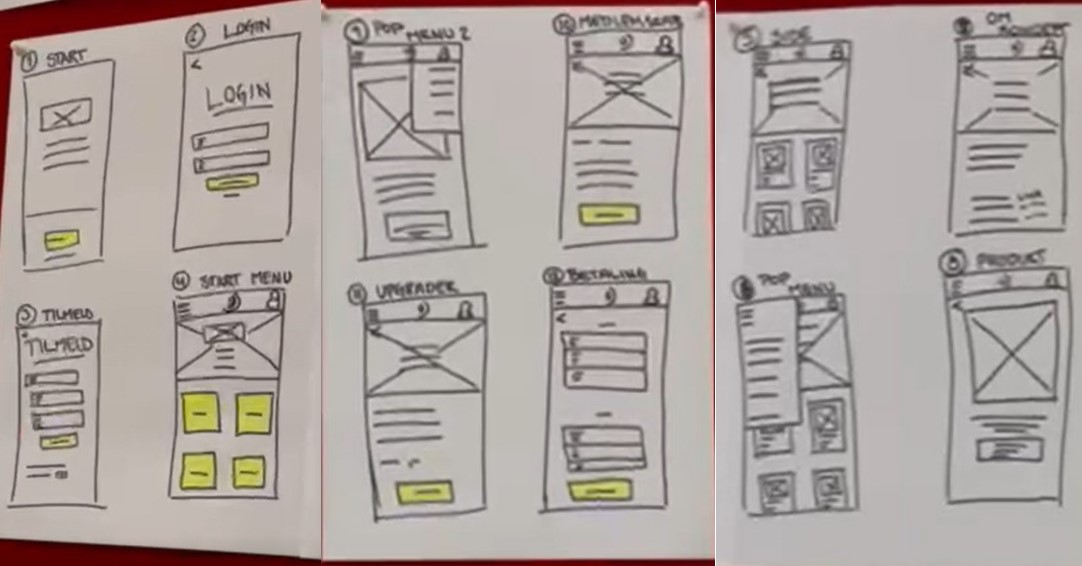 1 START
2 LOGIN
<
LOGIN
3 TILMELD
TILMELD
4 START MENU
9 POP
MENU 2
10 MEDLEMSKAB
11 UPGRADER
12 BETALING
<
5 SIDE
OM
6 POP
MENU
8 PRODUKT